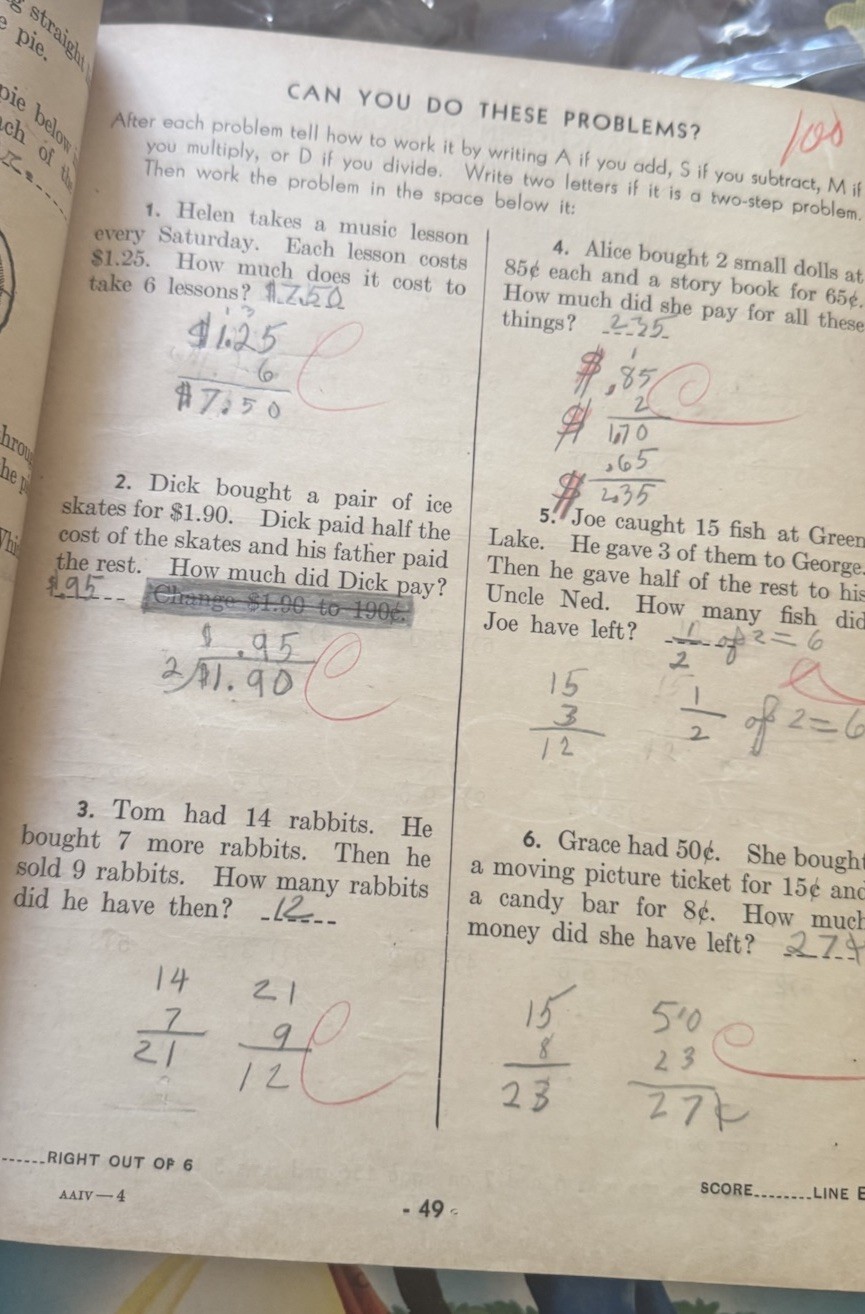 g straight
e pie.
pie below
ach of th
CAN YOU DO THESE PROBLEMS?
100
After each problem tell how to work it by writing A if you add, S if you subtract, M if
you multiply, or D if you divide. Write two letters if it is a two-step problem.
Then work the problem in the space below it:
1. Helen takes a music lesson
every Saturday. Each lesson costs
$1.25. How much does it cost to
take 6 lessons? $7.50
1 3
$1.25
6
$7.50
2. Dick bought a pair of ice
skates for $1.90. Dick paid half the
cost of the skates and his father paid
the rest. How much did Dick pay?
$.95 Change $1.90 to 190¢.
$ .95
2/$1.90
3. Tom had 14 rabbits. He
bought 7 more rabbits. Then he
sold 9 rabbits. How many rabbits
did he have then? 12
14 21
7 9
21 12
4. Alice bought 2 small dolls at
85¢ each and a story book for 65¢.
How much did she pay for all these
things? 2.35
1
$ .85
2
$ 1.70
.65
$ 2.35
5. Joe caught 15 fish at Green
Lake. He gave 3 of them to George.
Then he gave half of the rest to his
Uncle Ned. How many fish did
Joe have left? 1/2 of 2 = 6
15
3 1/2 of 2 = 6
12
6. Grace had 50¢. She bought
a moving picture ticket for 15¢ and
a candy bar for 8¢. How much
money did she have left? 27¢
15 50
8 23
23 27¢
RIGHT OUT OF 6
AAIV—4
- 49 -
SCORE LINE E